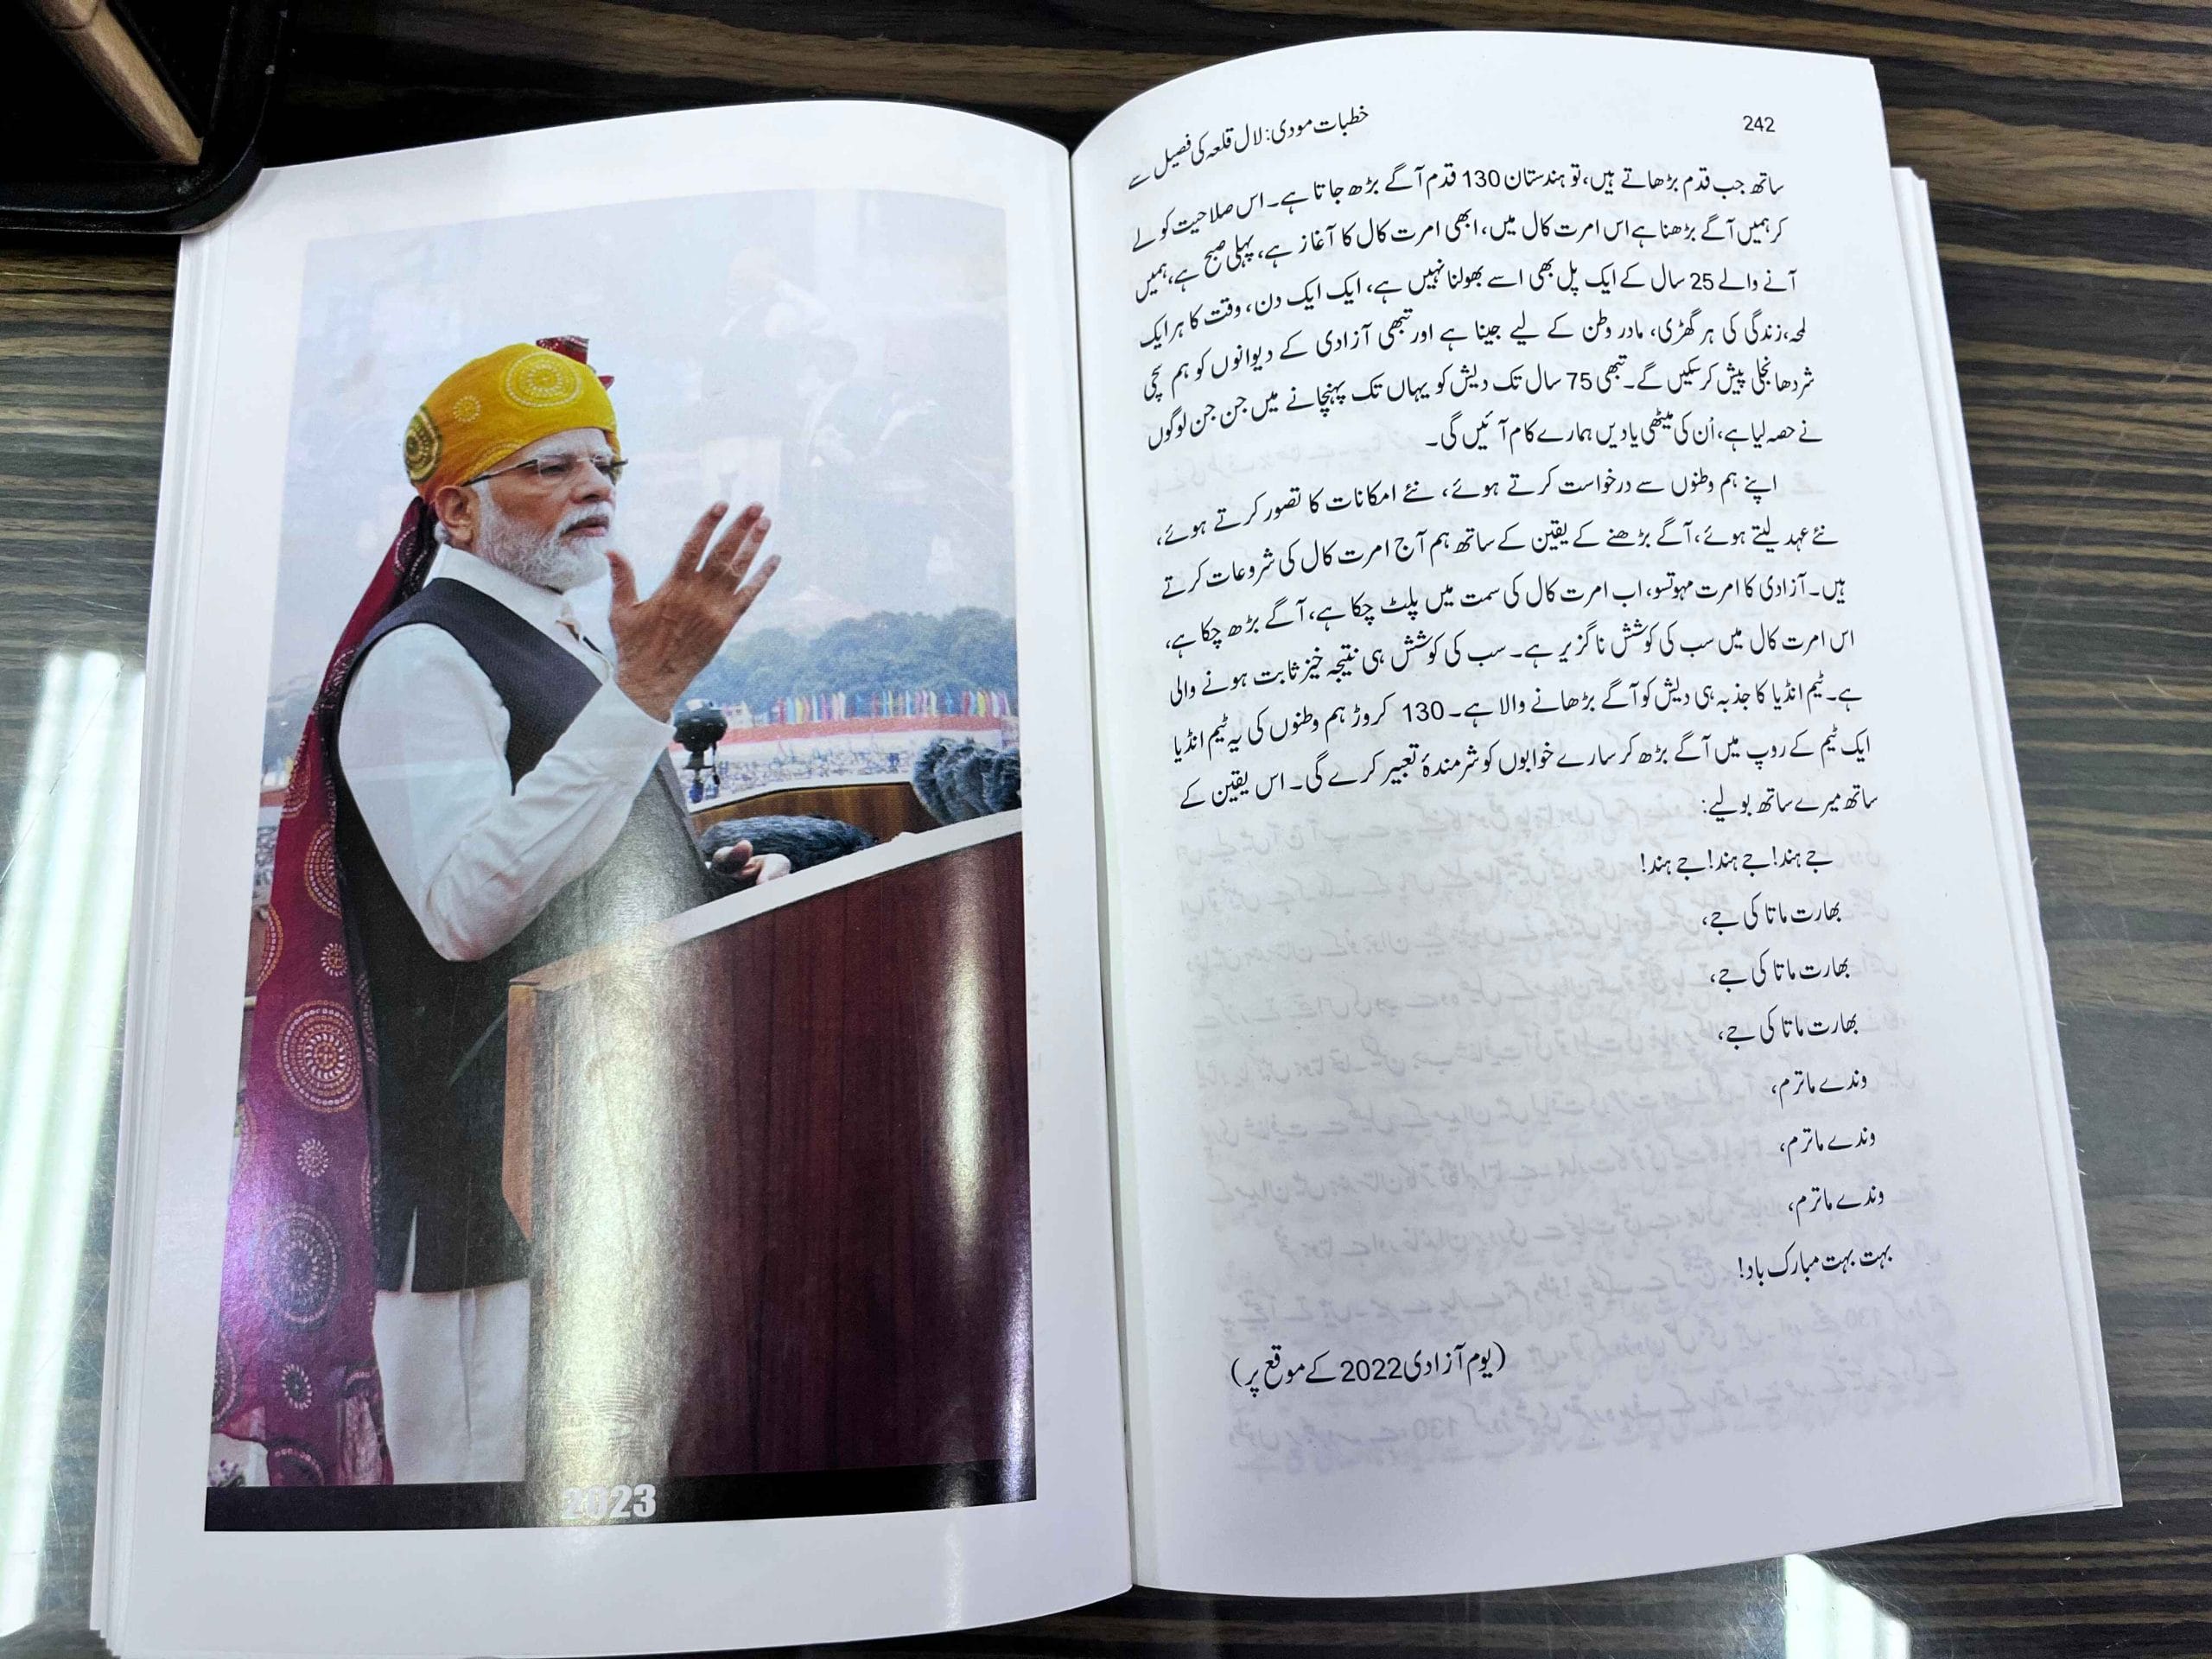 242
خطبات مودی: لال قلعہ کی فصیل سے
ساتھ جب قدم بڑھاتے ہیں، تو ہندستان 130 قدم آگے بڑھ جاتا ہے۔ اس صلاحیت کو لے
کر ہمیں آگے بڑھنا ہے اس امرت کال میں، ابھی امرت کال کا آغاز ہے، پہلی صبح ہے، ہمیں
آنے والے 25 سال کے ایک پل بھی اسے بھولنا نہیں ہے، ایک ایک دن، وقت کا ہر ایک
لمحہ، زندگی کی ہر گھڑی، مادر وطن کے لیے جینا ہے اور تبھی آزادی کے دیوانوں کو ہم سچی
شردھانجلی پیش کر سکیں گے۔ تبھی 75 سال تک دیش کو یہاں تک پہنچانے میں جن جن لوگوں
نے حصہ لیا ہے، اُن کی میٹھی یادیں ہمارے کام آئیں گی۔
اپنے ہم وطنوں سے درخواست کرتے ہوئے، نئے امکانات کا تصور کرتے ہوئے،
نئے عہد لیتے ہوئے، آگے بڑھنے کے یقین کے ساتھ ہم آج امرت کال کی شروعات کرتے
ہیں۔ آزادی کا امرت مہوتسو، اب امرت کال کی سمت میں پلٹ چکا ہے، آگے بڑھ چکا ہے،
اس امرت کال میں سب کی کوشش ناگزیر ہے۔ سب کی کوشش ہی نتیجہ خیز ثابت ہونے والی
ہے۔ ٹیم انڈیا کا جذبہ ہی دیش کو آگے بڑھانے والا ہے۔ 130 کروڑ ہم وطنوں کی یہ ٹیم انڈیا
ایک ٹیم کے روپ میں آگے بڑھ کر سارے خوابوں کو شرمندۂ تعبیر کرے گی۔ اس یقین کے
ساتھ میرے ساتھ بولیے:
جے ہند! جے ہند! جے ہند!
بھارت ماتا کی جے،
بھارت ماتا کی جے،
بھارت ماتا کی جے،
وندے ماترم،
وندے ماترم،
وندے ماترم،
بہت بہت مبارک باد!
(یوم آزادی 2022 کے موقع پر)
2023